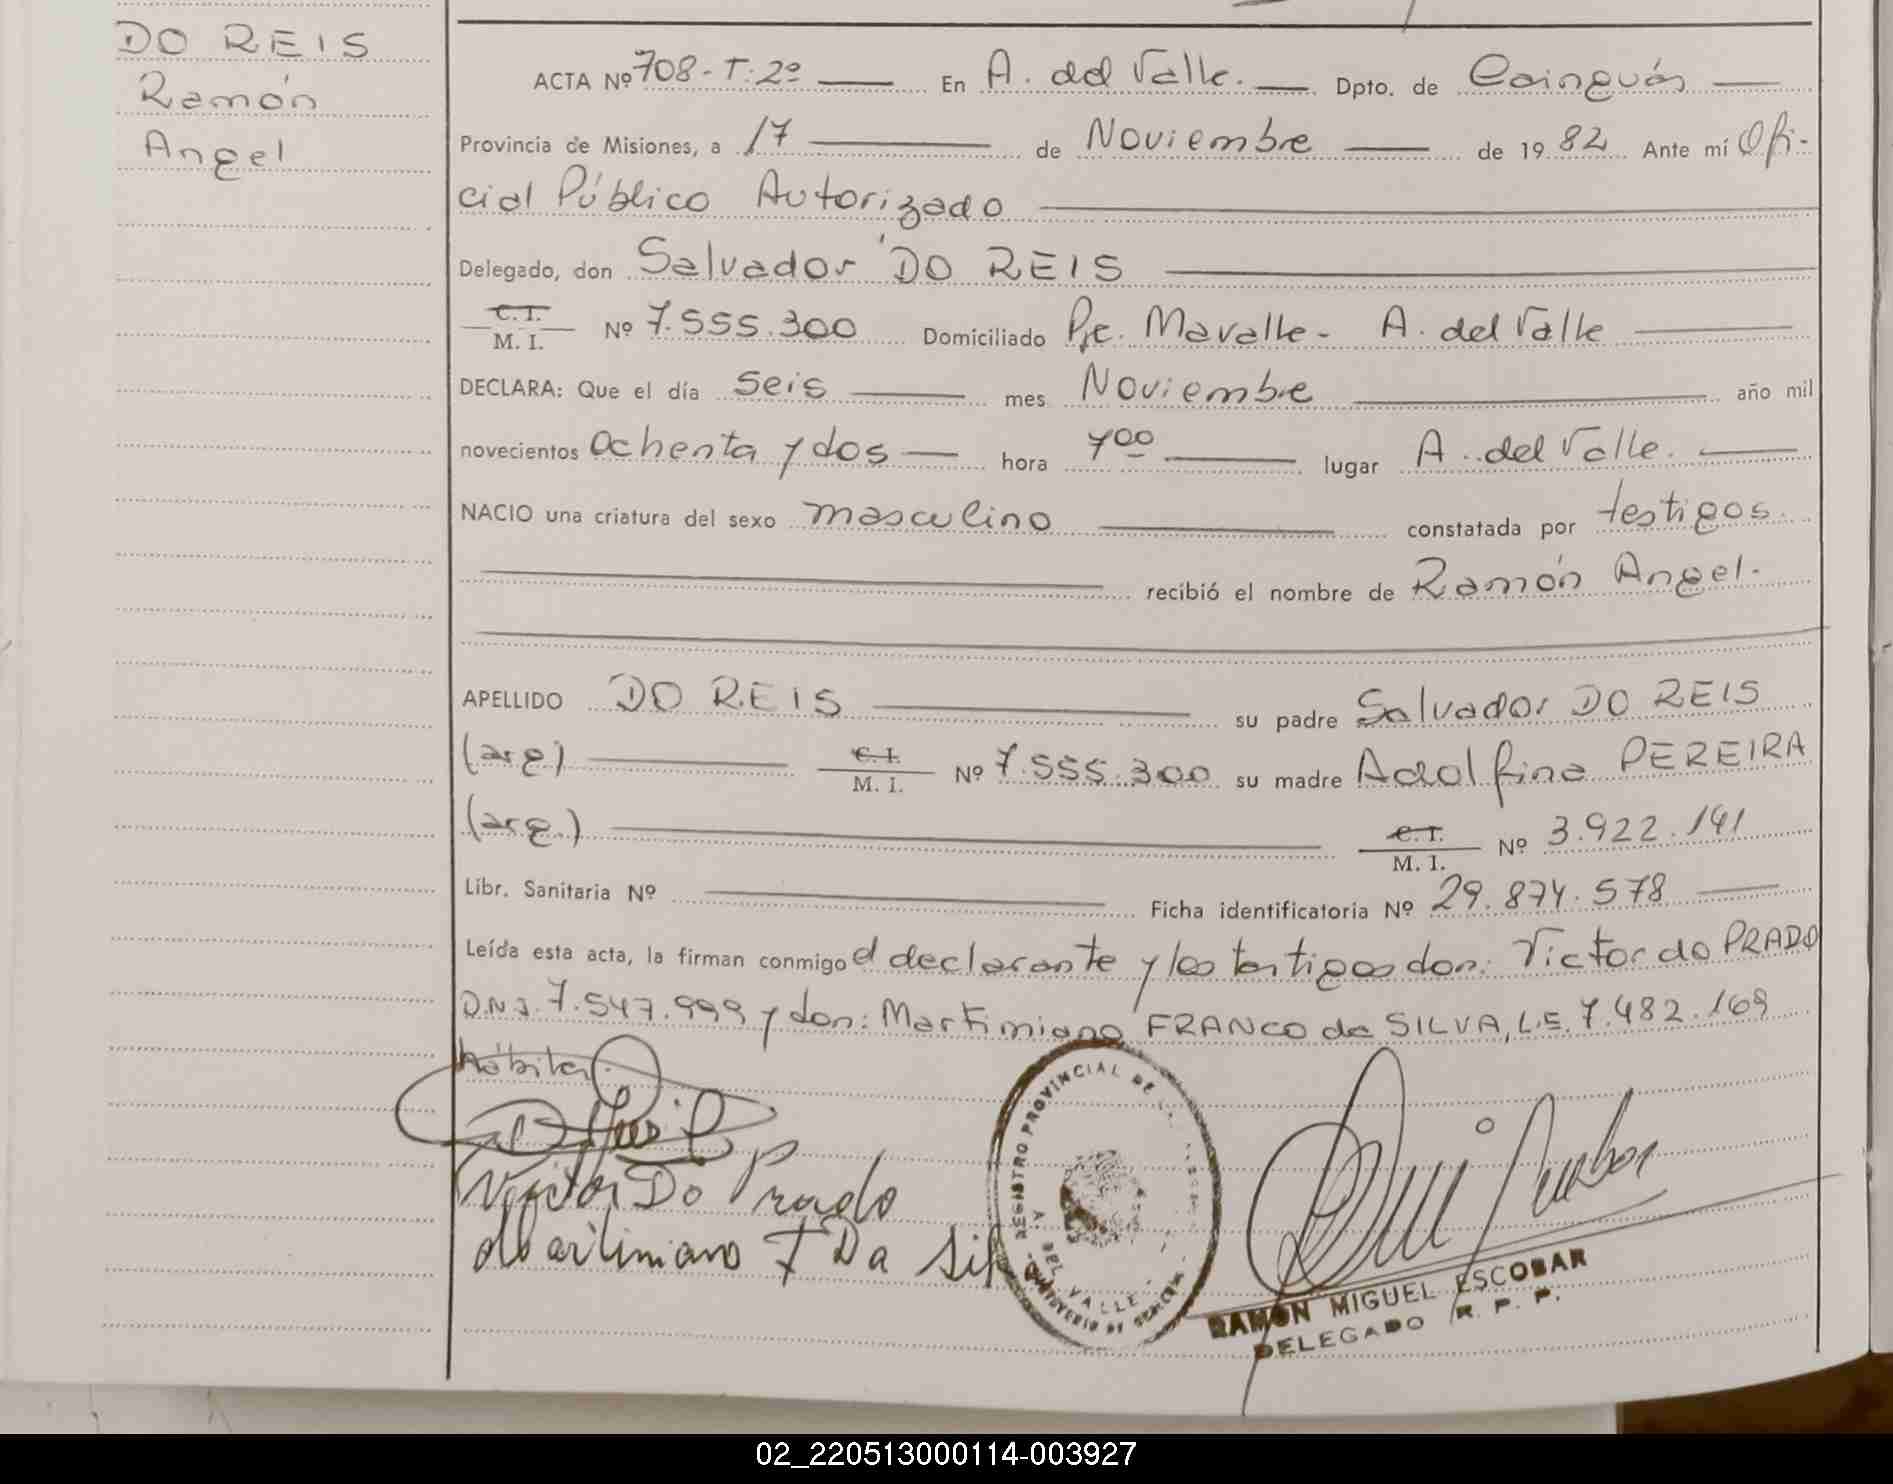 DO REIS
Ramón
Angel
ACTA Nº 708-T:2º En A. del Valle. Dpto. de Cainguás
Provincia de Misiones, a 17 de Noviembre de 1982 Ante mí Ofi-
cial Público Autorizado
Delegado, don Salvador DO REIS
C.I.
M. I. Nº 7.555.300 Domiciliado Pje. Mavalle - A. del Valle
DECLARA: Que el día seis mes Noviembre año mil
novecientos ochenta y dos hora 7oo lugar A. del Valle.
NACIO una criatura del sexo masculino constatada por testigos.
recibió el nombre de Ramón Angel.
APELLIDO DO REIS su padre Salvador DO REIS
(arg) C.I. M. I. Nº 7.555.300 su madre Adolfina PEREIRA
(arg.) C.I. M. I. Nº 3.922.141
Libr. Sanitaria Nº Ficha identificatoria Nº 29.874.578
Leída esta acta, la firman conmigo el declarante y los testigos don: Victor do PRADO
D.N.I. 7.547.999 y don: Martimiano FRANCO da SILVA, L.E. 7.482.169
hábiles.
Victor Do Prado
Martimiano F Da Sil
REGISTRO PROVINCIAL DE
A. DEL VALLE
RAMON MIGUEL ESCOBAR
DELEGADO R. P. P.
02_220513000114-003927